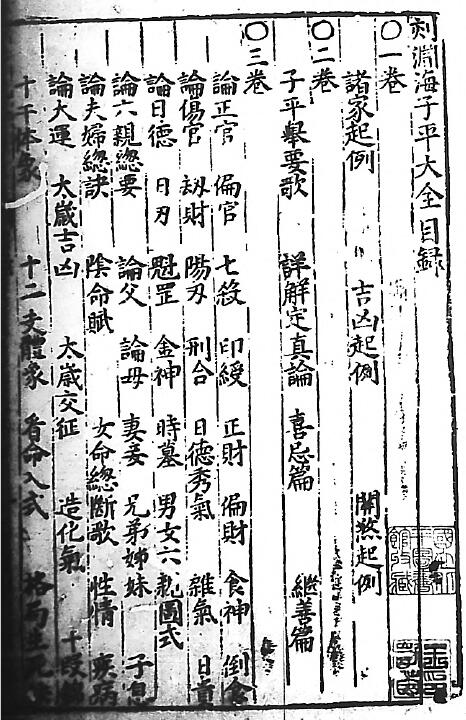 刻淵海子平大全目録
〇一卷
諸家起例 吉凶起例 關煞起例
〇二卷
子平舉要歌 詳解定真論 喜忌篇 継善篇
〇三卷
論正官 偏官 七殺 印綬 正財 偏財 食神 倒食
論傷官 刼財 陽刃 刑合 日德秀氣 雜氣 日貴
論日德 日刃 魁罡 金神 時墓 男女六親圖式
論六親總要 論父 論母 妻妾 兄弟姊妹 子息
論夫婦總訣 陰命賦 女命總斷歌 性情 疾病
論大運 太歲吉凶 太歲交征 造化氣
十干体象 十二支體象 看命入式